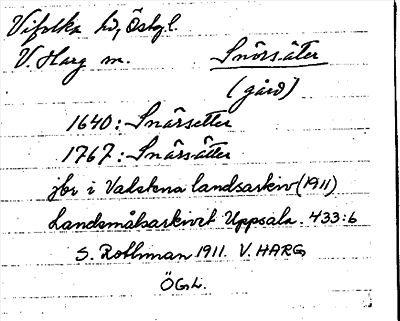 Vifolka hd, Östgl.
V. Harg sn.
Snörsäter
(gård)
1640: Snärsetter
1767: Snärsätter
jbr i Vadstena landsarkiv (1911)
Landsmålsarkivet Uppsala. 433:6
S. Rothman 1911. V. HARG
ÖGL.